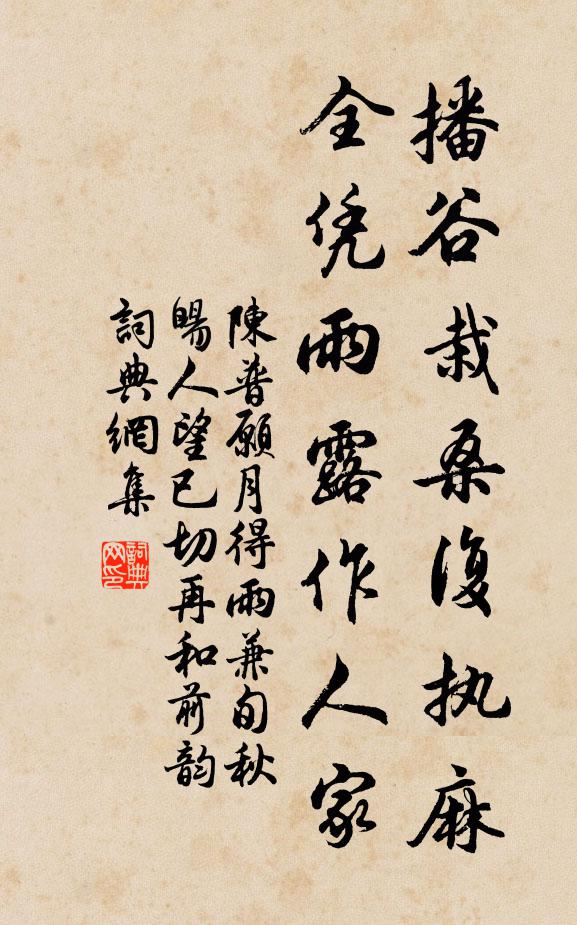 播谷栽桑復执麻
全凭雨露作人家
陳普願月得雨兼旬秋
暘人望已切再和前韵
詞典網集
詞典
网印